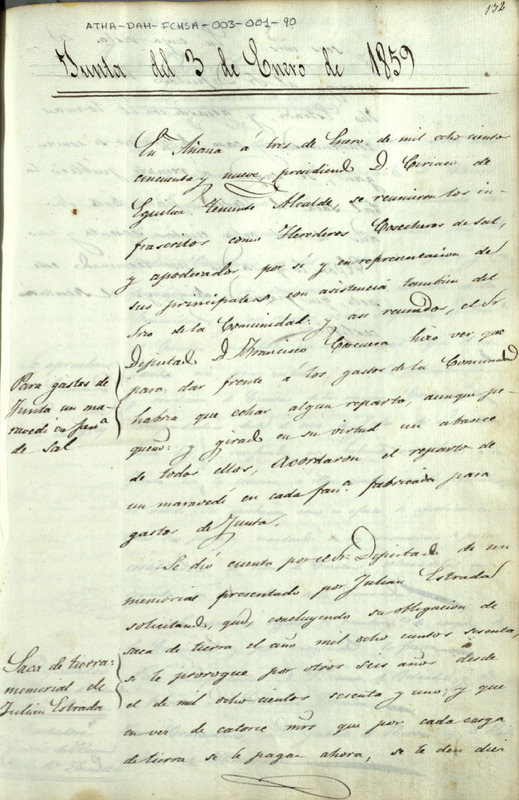 132
ATHA-DAH-FCHSA-003-001-90
Junta del 3 de Enero de 1859
En Añana á tres de Enero de mil ocho cientos
cincuenta y nueve, presidiend D. Ciriaco de
Eguiluz Teniente Alcalde, se reunieron los in-
frascritos como Herederos Cosecheros de sal,
y apoderados, por sí y en representacion de
sus principales, con asistencia tambien del
Srio de la Comunidad: y asi reunidos, el Sr.
Diputad D. Francisco Corcuera hizo ver, que
para dar frente á los gastos de la Comunidad
habria que echar algun reparto, aunque pe-
queño: y girad en su virtud un abance
de todos ellos, Acordaron el reparto de
un maravedi en cada fanª. fabricada para
gastos de Junta.
Para gastos de
Junta un ma-
ravedi en fanª
de sal
Se dió cuenta por el Sr. Diputad de un
memorial presentado por Julian Estrada
solicitand, que, concluyendo su obligacion de
saca de tierra el año mil ocho cientos sesenta,
se le prorogue por otros seis años desde
el de mil ocho cientos sesenta y uno; y que
en vez de catorce mrs que por cada carga
de tierra se le pagan ahora, se le den diez
Saca de tierra:
memorial de
Julian Estrada